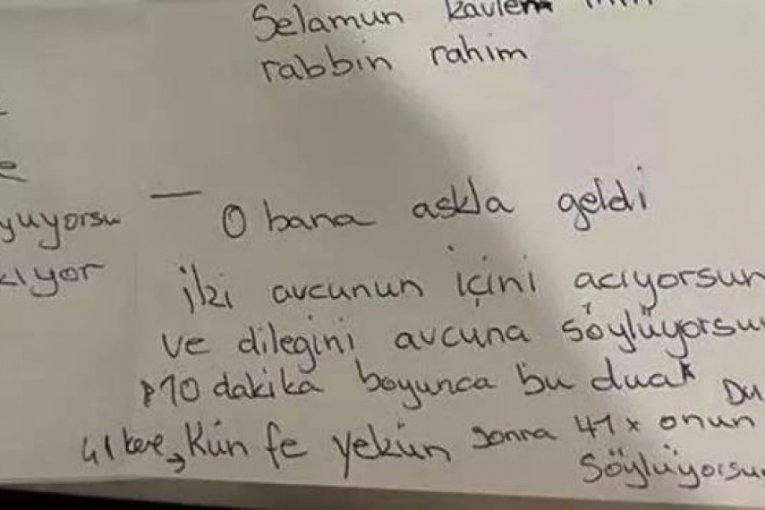 Selamun kavlem min
rabbin rahim
yuyorsu
kıyor
— O bana askla geldi
iki avcunun içini acıyorsun
ve dilegini avcuna söylüyorsun
10 dakika boyunca bu dua
41 kere → Kün fe yekün sonra 41x onun
söylüyorsun